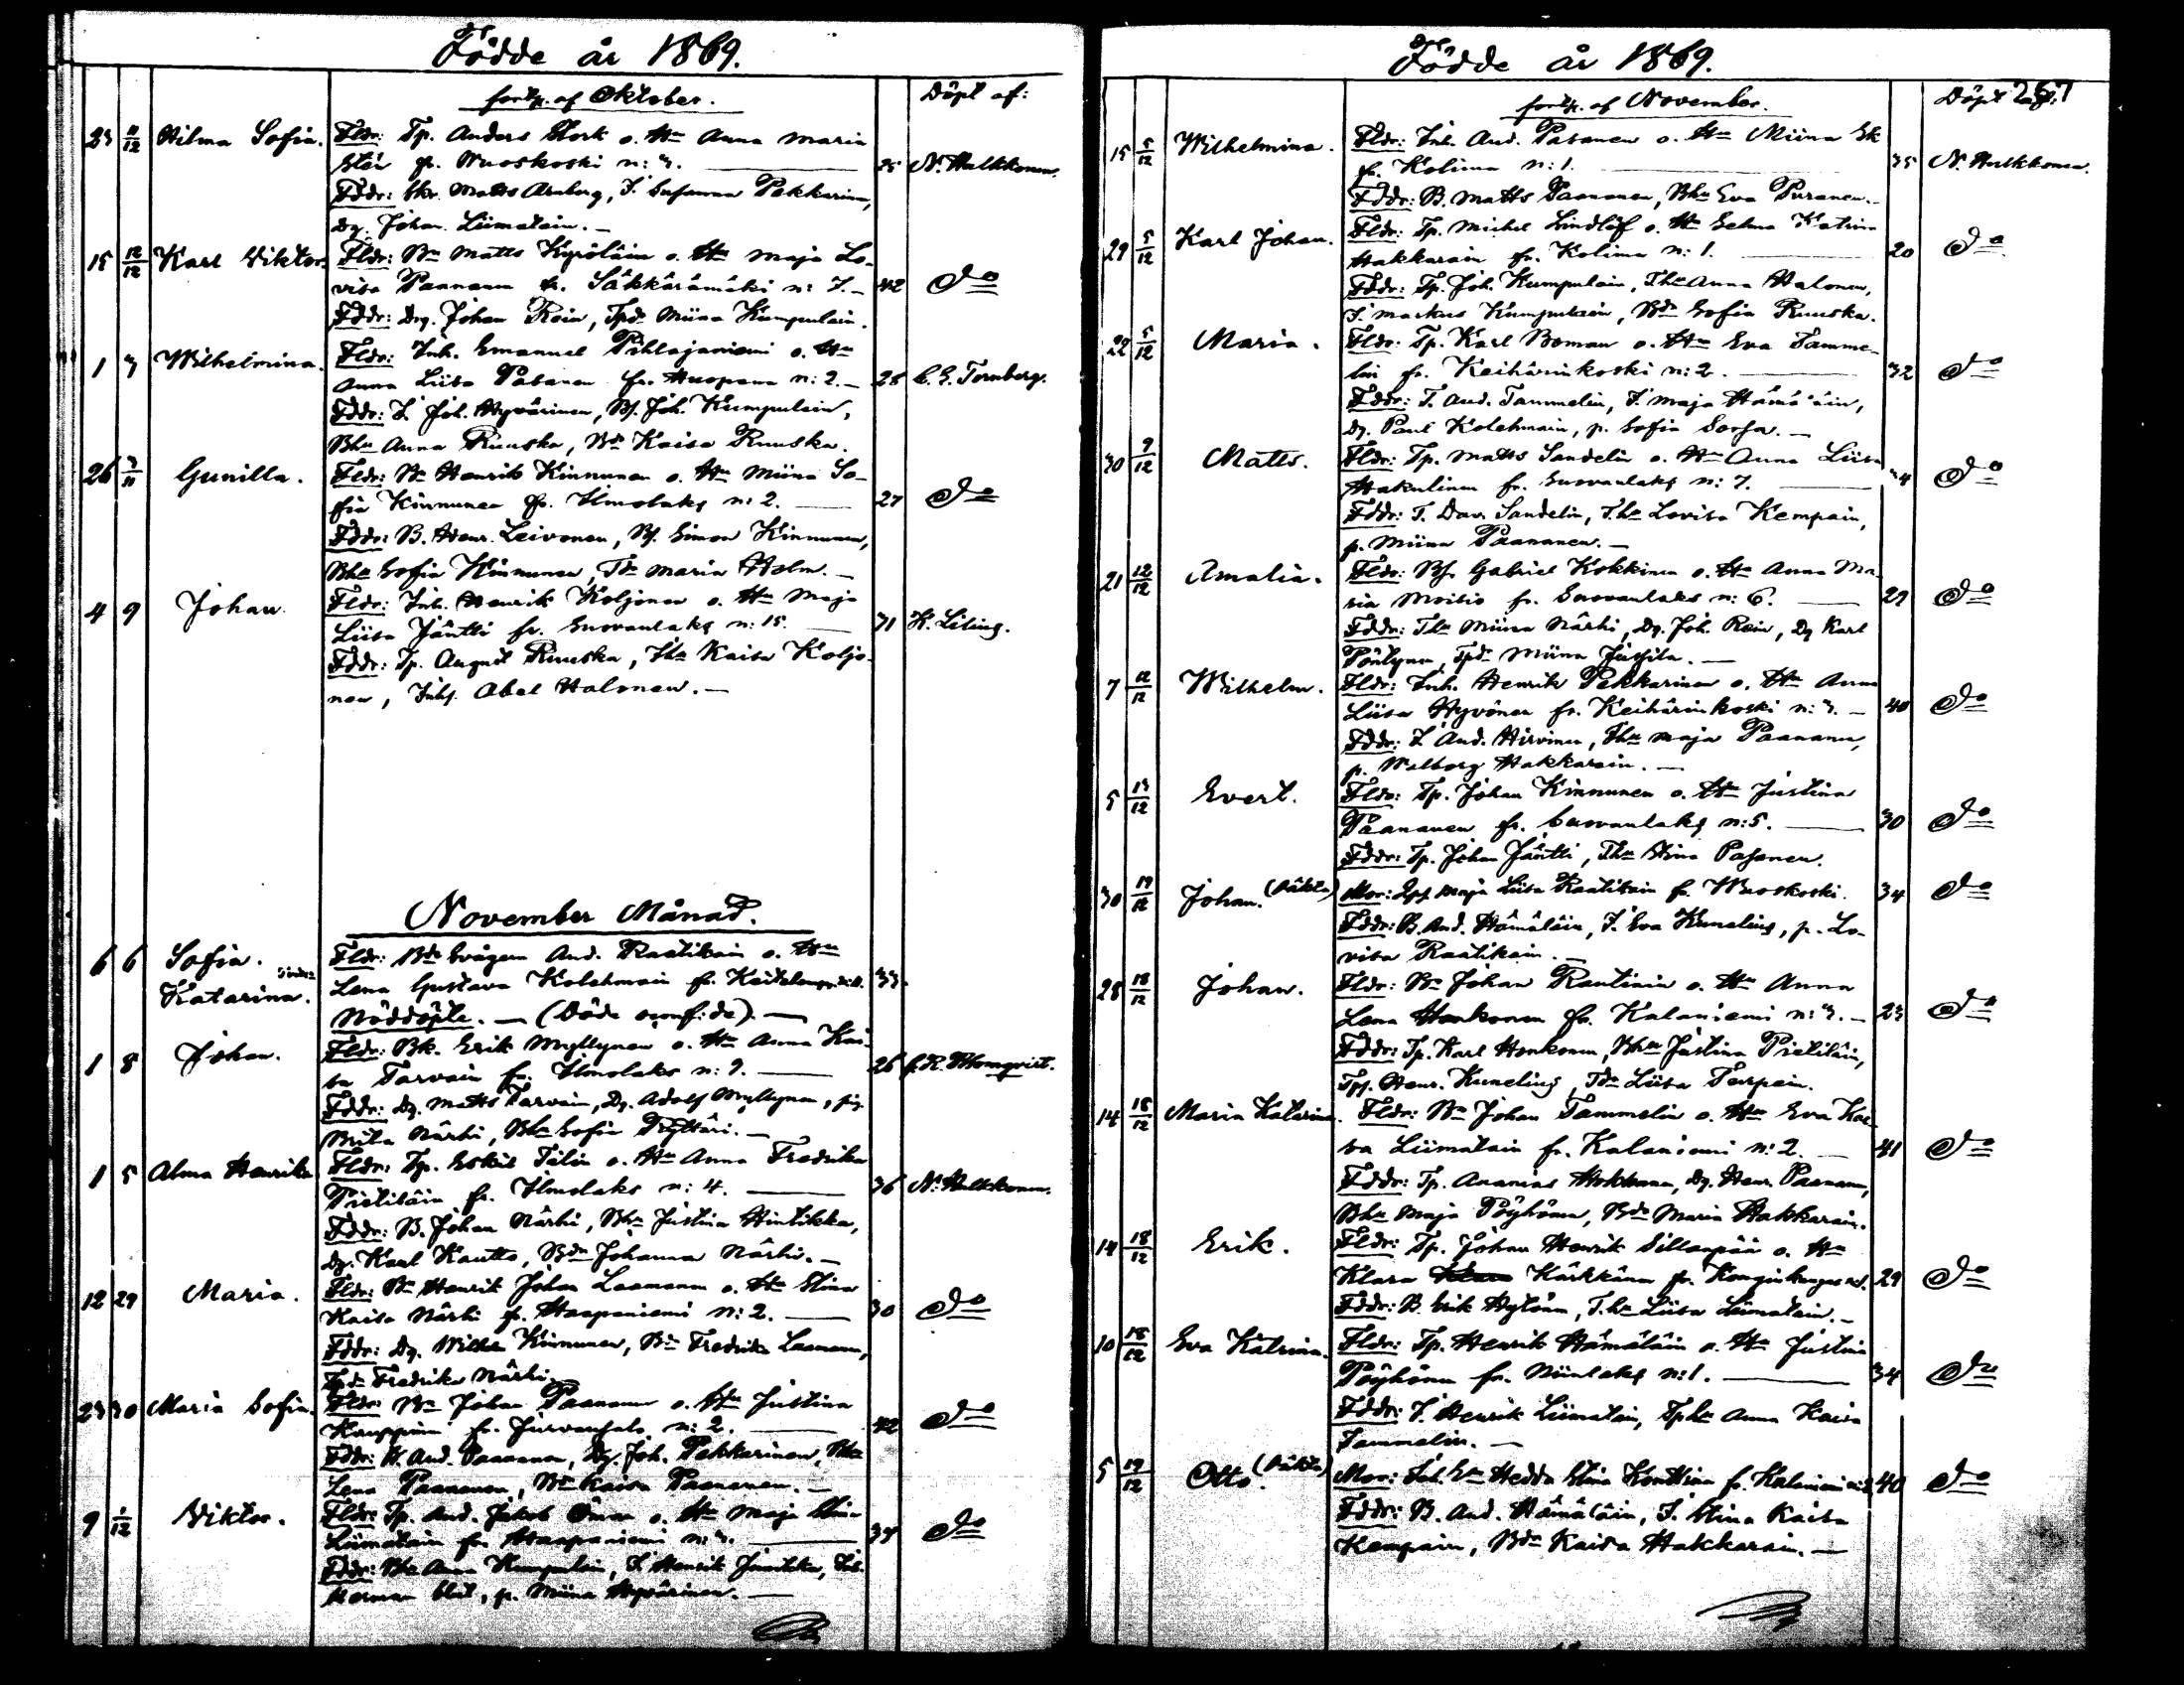 Födde år 1869.
forts. af Oktober. Döpt af:
23 11/12 Hilma Sofia. Fldr: Tp. Anders Stork o. Hu Anna Maria
fr. Wuoskoski n: 3. 25 N. Hulkkonen.
Fddr: Skr. Matts Arnberg, I. Susanna Pekkarinen,
Dg. Johan Liimatain.
15 12/12 Karl Viktor. Fldr: Bn Matts Kyröläin o. Hu Maja Lo-
visa Paananen fr. Säkkärämäki n: 7. 42 Do
Fddr: Drg. Johan Rein, Tpdr Miina Kumpulain.
1 3 Wilhelmina. Fldr: Inh. Emanuel Pihlajaniemi o. Hu
Anna Liisa Pasanen fr. Huopana n: 2. 28 C. G. Tornberg.
Fddr: I. Joh. Hyvärinen, Bs. Joh. Kumpulain,
Bhu Anna Ruuska, Bdr Kaisa Ruuska.
26 3/11 Gunilla. Fldr: Bn Henrik Kinnunen o. Hu Miina So-
fia Kinnunen fr. Ilmolaks n: 2. 27 Do
Fddr: B. Henr. Leivonen, Bs. Simon Kinnunen,
Bhu Sofia Kinnunen, Tdr Maria Holm.
4 9 Johan. Fldr: Inh. Henrik Koljonen o. Hu Maja
Liisa Jäntti fr. Suovanlaks n: 15. 31 K. Lilius.
Fddr: Tp. August Ruuska, Ihu Kaisa Koljo-
nen, Inhs. Abel Halonen.
November Månad.
6 6 Sofia. Fldr: Bds Svågern And. Raatikain o. Hu
Katarina. Lena Gustava Kolehmain fr. 33.
Nöddöpte. (Döde)
1 8 Johan. Fldr: Bk. Erik Myllynen o. Hu Anna Kai-
sa Tarvain fr. Ilmolaks n: 9. 26
Fddr: Dg. Matts Tarvain, Dg. Adolf Myllynen, pig.
Brita Närhi, Bhu Sofia
1 5 Alma Henrika Fldr: Tp. Eskil Tilin o. Hu Anna Fredrika
Pietiläin fr. Ilmolaks n: 4. 36 N. Hulkkonen.
Fddr: B. Johan Närhi, Bhu Justina Hintikka,
Dg. Karl Kautto, Bdr Johanna Närhi.
12 29 Maria. Fldr: Bn Henrik Johan Laamanen o. Hu Stina
Kaisa Närhi fr. Haapaniemi n: 2. 30 Do
Fddr: Dg. Wilhelm Kinnunen, Bn Fredrika Laamanen,
Tpdr Fredrika Närhi.
23 30 Maria Sofia. Fldr: Bn Johan Paananen o. Hu Justina
Kauppinen fr. n: 2. 42 Do
Fddr: B. And. Paananen, Dg. Joh. Pekkarinen, Bhu
Lena Paananen, Bdr Kaisa Paananen.
9 1/12 Viktor. Fldr: Tp. And. Jakob o. Hu Maja Stina
Liimatain fr. Haapaniemi n: 3. Do
Fddr: Bhu Anna Kumpulain, I. Henrik
Herman p. Miina Hyvärinen.
Födde år 1869.
267
forts. af November. Döpt af:
15 5/12 Wilhelmina. Fldr: Inh. And. Pasanen o. Hu Miina Ek
fr. Kolima n: 1. 35 N. Hulkkonen.
Fddr: B. Matts Paananen, Bhu Eva Puranen.
29 5/12 Karl Johan. Fldr: Tp. Michel Lindlöf o. Hu Selma Katrina
Hakkarain fr. Kolima n: 1. 20 Do
Fddr: Tp. Joh. Kumpulain, Ihu Anna Halonen,
I. Markus Kumpulain, Bdr Sofia Ruuska.
22 5/12 Maria. Fldr: Tp. Karl Boman o. Hu Eva Tamme-
lin fr. Keihärinkoski n: 2. 32 Do
Fddr: T. And. Tammelin, I. Maja Hämäläin,
Dg. Paul Kolehmain, p. Sofia Sorsa.
30 9/12 Matts. Fldr: Tp. Matts Sandelin o. Hu Anna Liisa
Hakulinen fr. Suovanlaks n: 7. Do
Fddr: T. Dav. Sandelin, Ihu Lovisa Kempain,
p. Miina Paananen.
21 12/12 Amalia. Fldr: Bs. Gabriel Kokkinen o. Hu Anna Ma-
ria Moisio fr. Suovanlaks n: 6. 29 Do
Fddr: Thu Miina Närhi, Dg. Joh. Rein, Dg Karl
Pöntynen, Tpdr Miina Jussila.
7 12/12 Wilhelm. Fldr: Inh. Henrik Pekkarinen o. Hu Anna
Liisa Hyvönen fr. Keihärinkoski n: 3. 40 Do
Fddr: I. And. Hirvinen, Ihu Maja Paananen,
p. Walborg Hakkarain.
5 13/12 Evert. Fldr: Tp. Johan Kinnunen o. Hu Justina
Paananen fr. Suovanlaks n: 5. 30 Do
Fddr: Tp. Johan Jäntti, Thu Stina Pasanen.
30 19/12 Johan. (oäkta) Mor: Maja Liisa Raatikain fr. Wuoskoski. 34 Do
Fddr: B. And. Hämäläin, I. Eva Kunelius, p. Lo-
visa Raatikain.
28 18/12 Johan. Fldr: Bn Johan Rautiain o. Hu Anna
Lena Honkonen fr. Kalaniemi n: 3. 23 Do
Fddr: Tp. Karl Honkonen, Bhu Justina Pietiläin,
Tps. Henr. Kunelius, Tdr Liisa Turpein.
14 18/12 Maria Katarina. Fldr: Bn Johan Tammelin o. Hu Eva Kai-
sa Liimatain fr. Kalaniemi n: 2. 41 Do
Fddr: Tp. Ananias Hokkanen, Dg. Henr. Paananen,
Bhu Maja Pöyhönen, Bdr Maria Hakkarain.
14 18/12 Erik. Fldr: Tp. Johan Henrik Sillanpää o. Hu
Klara Kärkkäinen fr. 29 Do
Fddr: B. Erik Hytönen, Ihu Liisa Liimatain.
10 18/12 Eva Katrina. Fldr: Tp. Henrik Hämäläin o. Hu Justina
Pöyhönen fr. Niinilaks n: 1. 34 Do
Fddr: I. Henrik Liimatain, Tphu Anna Kaisa
Tammelin.
5 19/12 Otto. (oäkta) Mor: Hedda Stina Konttinen f. Kalaniemi 40 Do
Fddr: B. And. Hämäläin, I. Stina Kaisa
Kempain, Bdr Kaisa Hakkarain.